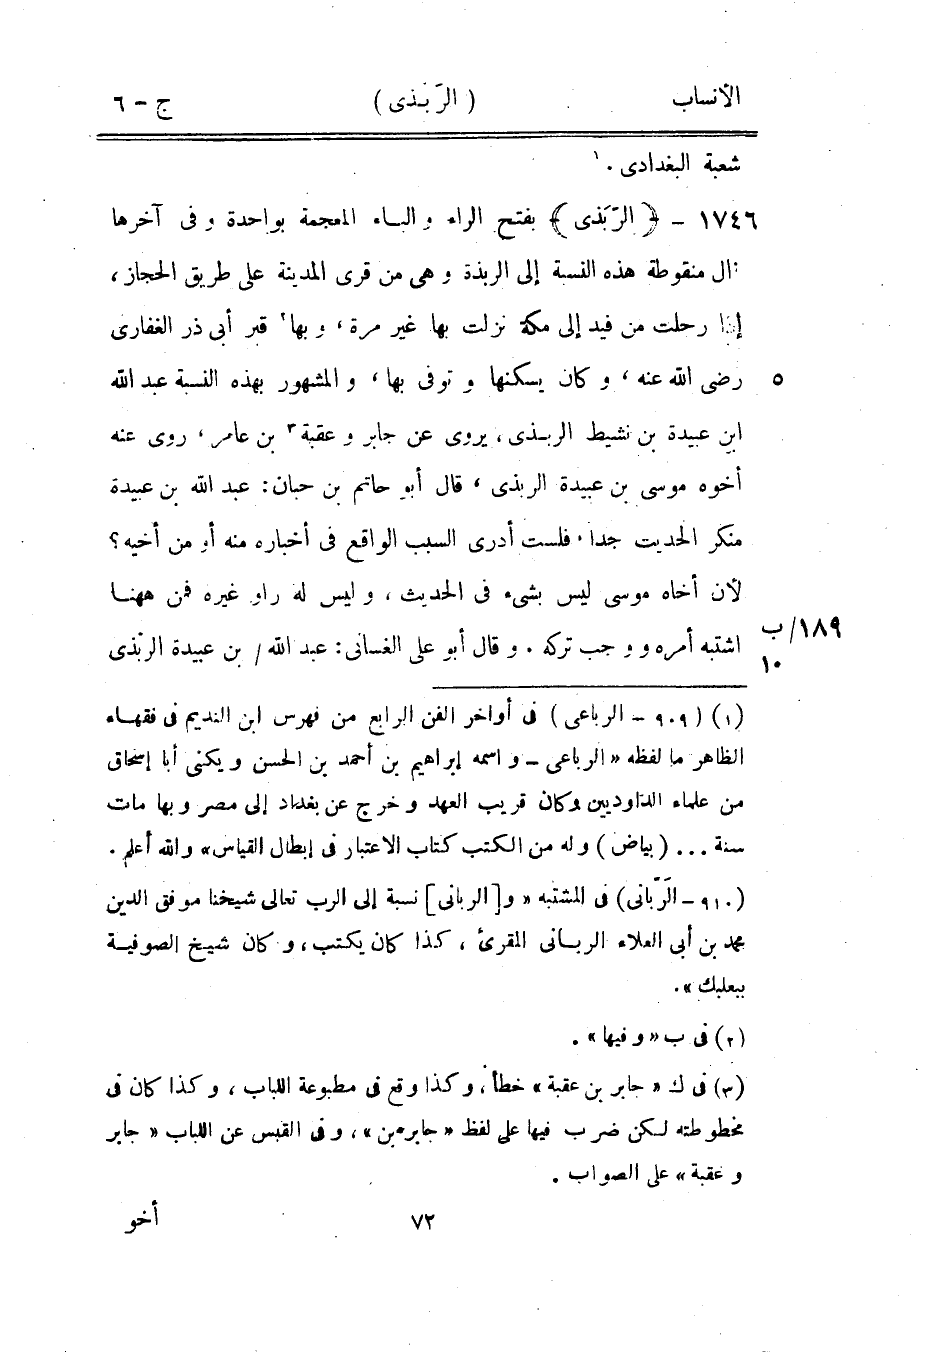 الأنساب ( الرَّبَذى ) ج - ٦
شعبة البغدادى .١
١٧٤٦ - ﴿ الرّبَذى ﴾ بفتح الراء والباء المعجمة بواحدة و فى آخرها
ذال منقوطة هذه النسبة إلى الربذة و هى من قرى المدينة على طريق الحجاز ،
إذا رحلت من فيد إلى مكة نزلت بها غير مرة ، و بها٢ قبر أبى ذر الغفارى
٥ رضى الله عنه ، و كان يسكنها و توفى بها ، و المشهور بهذه النسبة عبد الله
ابن عبيدة بن نشيط الربذى ، يروى عن جابر و عقبة٣ بن عامر ، روى عنه
أخوه موسى بن عبيدة الربذى ، قال أبو حاتم بن حبان : عبد الله بن عبيدة
منكر الحديث جدا ، فلست أدرى السبب الواقع فى أخباره منه أو من أخيه ؟
لأن أخاه موسى ليس بشىء فى الحديث ، و ليس له راو غيره فمن ههنا
١٨٩/ب اشتبه أمره و وجب تركه . و قال أبو على الغسانى : عبد الله / بن عبيدة الربذى
١٠
(١) ( ٩٠٩ - الرباعى ) فى أواخر الفن الرابع من فهرس ابن النديم فى فقهاء
الظاهر ما لفظه « الرباعى - و اسمه إبراهيم بن أحمد بن الحسن و يكنى أبا إسحاق
من علماء الداوديين وكان قريب العهد و خرج عن بغداد إلى مصر و بها مات
سنة ... ( بياض ) و له من الكتب كتاب الاعتبار فى إبطال القياس » والله أعلم .
(٩١٠ - الرَّبّانى) فى المشتبه « و [ الربانى ] نسبة إلى الرب تعالى شيخنا موفق الدين
محمد بن أبى العلاء الربانى المقرئ ، كذا كان يكتب ، و كان شيخ الصوفية
ببعلبك » .
(٢) فى ب « و فيها » .
(٣) فى ك « جابر بن عقبة » خطأ ، و كذا وقع فى مطبوعة اللباب ، و كذا كان فى
مخطوطته لكن ضرب فيها على لفظ « جابر بن » ، و فى القبس عن اللباب « جابر
و عقبة » على الصواب .
٧٢ أخو